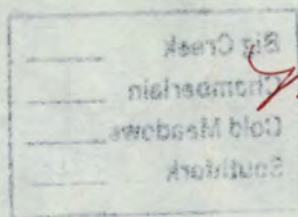 Big Creek
Chamberlain
Cold Meadows
Southfork